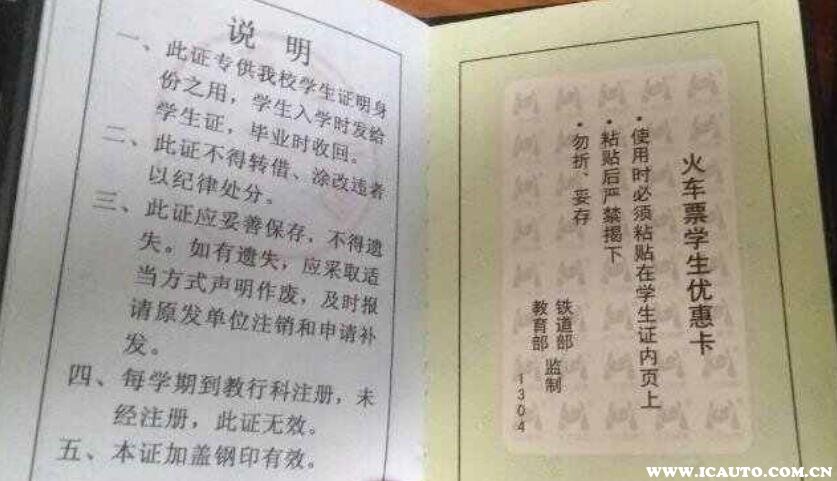 说 明
一、此证专供我校学生证明身
份之用，学生入学时发给
学生证，毕业时收回。
二、此证不得转借、涂改违者
以纪律处分。
三、此证应妥善保存，不得遗
失。如有遗失，应采取适
当方式声明作废，及时报
请原发单位注销和申请补
发。
四、每学期到教行科注册，未
经注册，此证无效。
五、本证加盖钢印有效。
火车票学生优惠卡
·使用时必须粘贴在学生证内页上
·粘贴后严禁揭下
·勿折、妥存
铁道部
教育部
监制
1304
WWW.ICAUTO.COM.CN